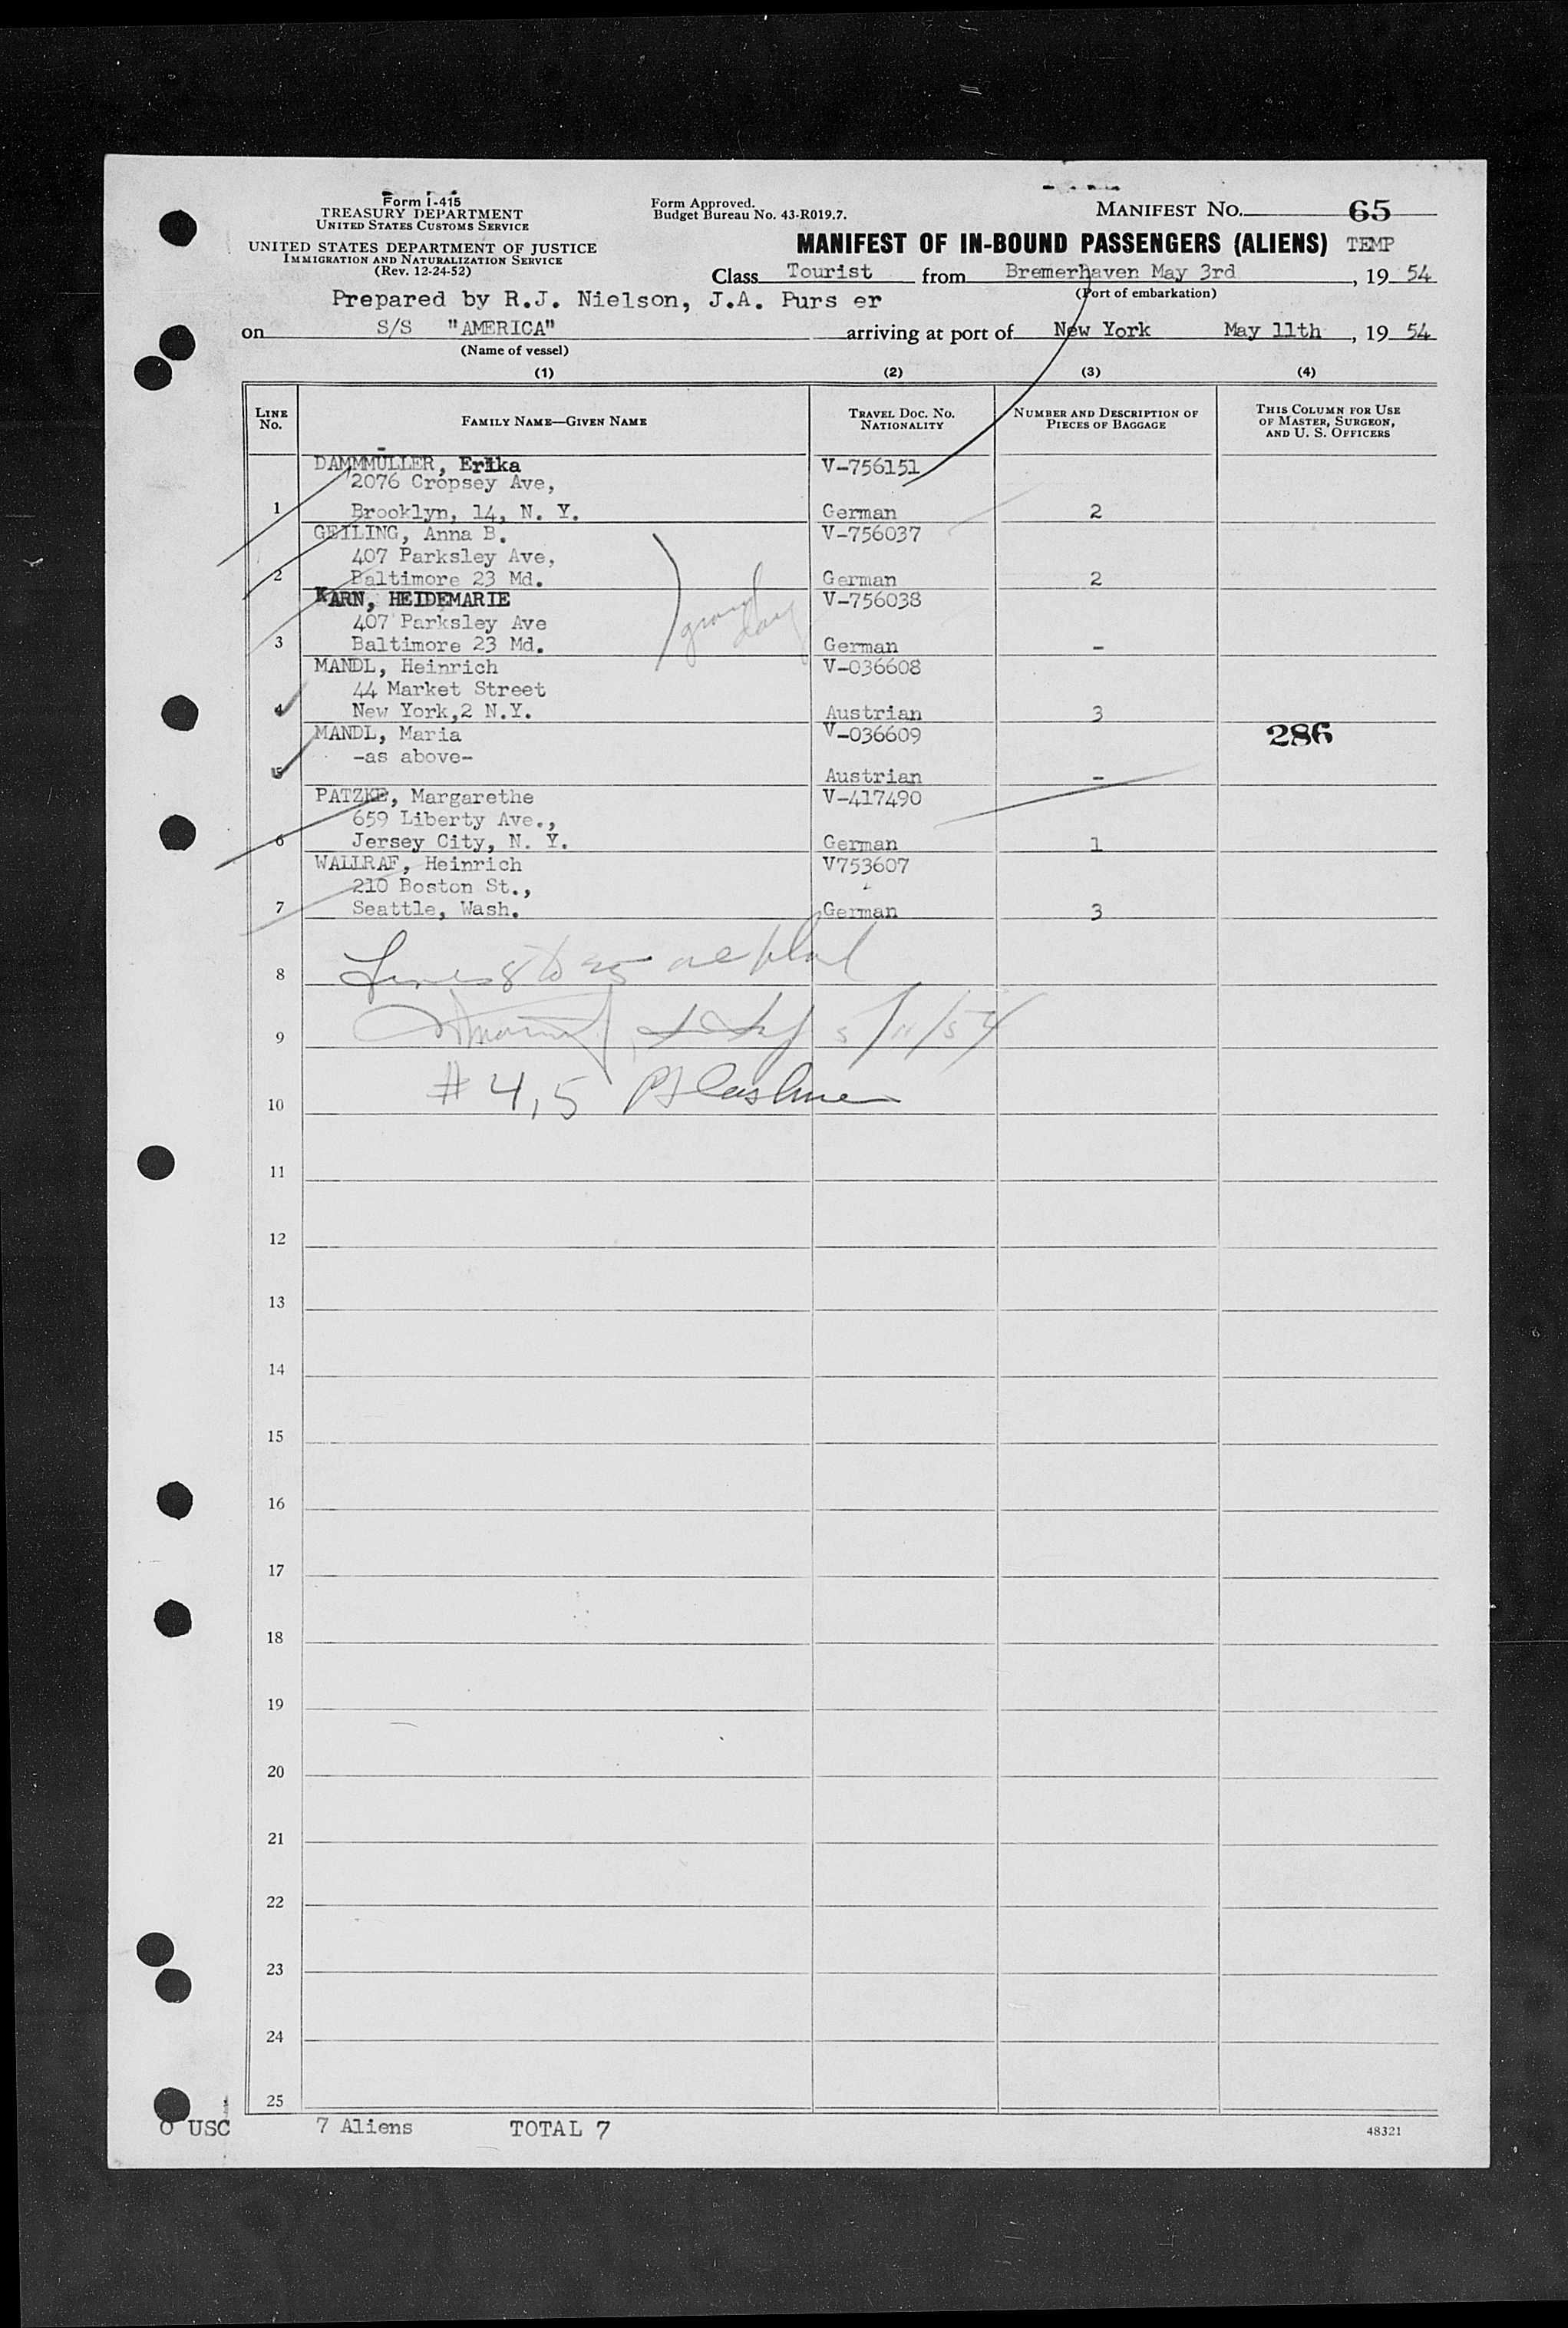 Form I-415
TREASURY DEPARTMENT
UNITED STATES CUSTOMS SERVICE
UNITED STATES DEPARTMENT OF JUSTICE
IMMIGRATION AND NATURALIZATION SERVICE
(Rev. 12-24-52)
Form Approved.
Budget Bureau No. 43-R019.7.
MANIFEST NO. 65
MANIFEST OF IN-BOUND PASSENGERS (ALIENS) TEMP
Class Tourist from Bremerhaven May 3rd, 19 54
(Port of embarkation)
Prepared by R.J. Nielson, J.A. Purs er
on S/S "AMERICA" arriving at port of New York May 11th, 19 54
(Name of vessel)
(1) (2) (3) (4)
LINE No. FAMILY NAME—GIVEN NAME TRAVEL DOC. NO. NATIONALITY NUMBER AND DESCRIPTION OF PIECES OF BAGGAGE THIS COLUMN FOR USE OF MASTER, SURGEON, AND U. S. OFFICERS
DAMMMULLER, Erika V-756151
2076 Cropsey Ave,
1 Brooklyn, 14, N. Y. German 2
GEILING, Anna B. V-756037
407 Parksley Ave,
2 Baltimore 23 Md. German 2
KARN, HEIDEMARIE V-756038
407 Parksley Ave
3 Baltimore 23 Md. German -
MANDL, Heinrich V-036608
44 Market Street
4 New York,2 N.Y. Austrian 3
MANDL, Maria V-036609 286
-as above-
5 Austrian -
PATZKE, Margarethe V-417490
659 Liberty Ave.,
6 Jersey City, N. Y. German 1
WALLRAF, Heinrich V753607
210 Boston St.,
7 Seattle, Wash. German 3
8 Lines 8 to 25
9 5/11/54
10 # 4,5
11
12
13
14
15
16
17
18
19
20
21
22
23
24
25
0 USC 7 Aliens TOTAL 7 48321